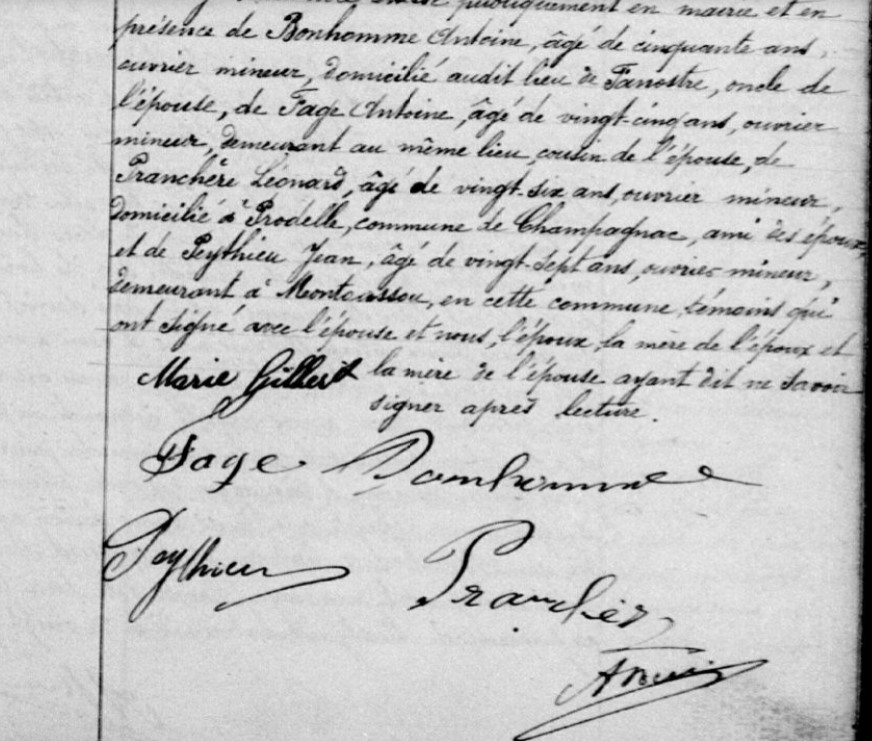 publiquement en mairie et en
présence de Bonhomme Antoine, âgé de cinquante ans,
ouvrier mineur, domicilié audit lieu de Fanostre, oncle de
l'épouse, de Fage Antoine, âgé de vingt-cinq ans, ouvrier
mineur, demeurant au même lieu, cousin de l'épouse, de
Pranchère Léonard, âgé de vingt-six ans, ouvrier mineur,
domicilié à Prodelle, commune de Champagnac, ami des époux,
et de Peythieu Jean, âgé de vingt-sept ans, ouvrier mineur,
demeurant à Montassou, en cette commune, témoins qui
ont signé avec l'épouse et nous, l'époux, la mère de l'époux et
la mère de l'épouse ayant dit ne savoir
signer après lecture.
Marie Gillet
Fage Bonhomme
Peythieu Prancher